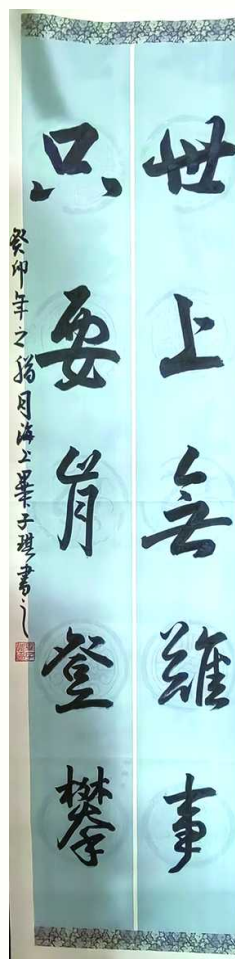 世上無難事
只要肯登攀
癸卯年之腊月海上畢子琪書之